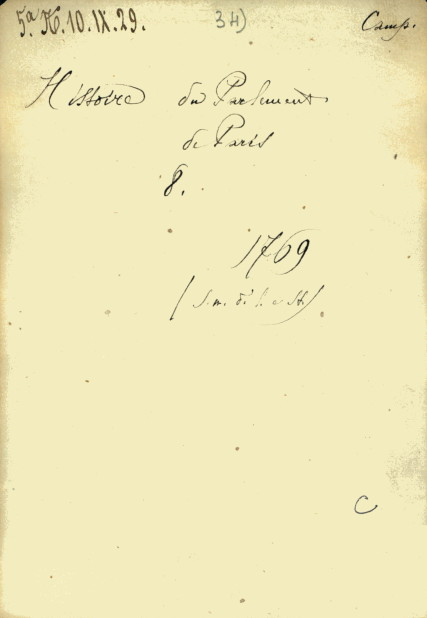 5.ª H. 10. IX. 29.
34)
Camp.
Histoire du Parlement
de Paris
8.
1769
(s. n. di l. e St.)
C